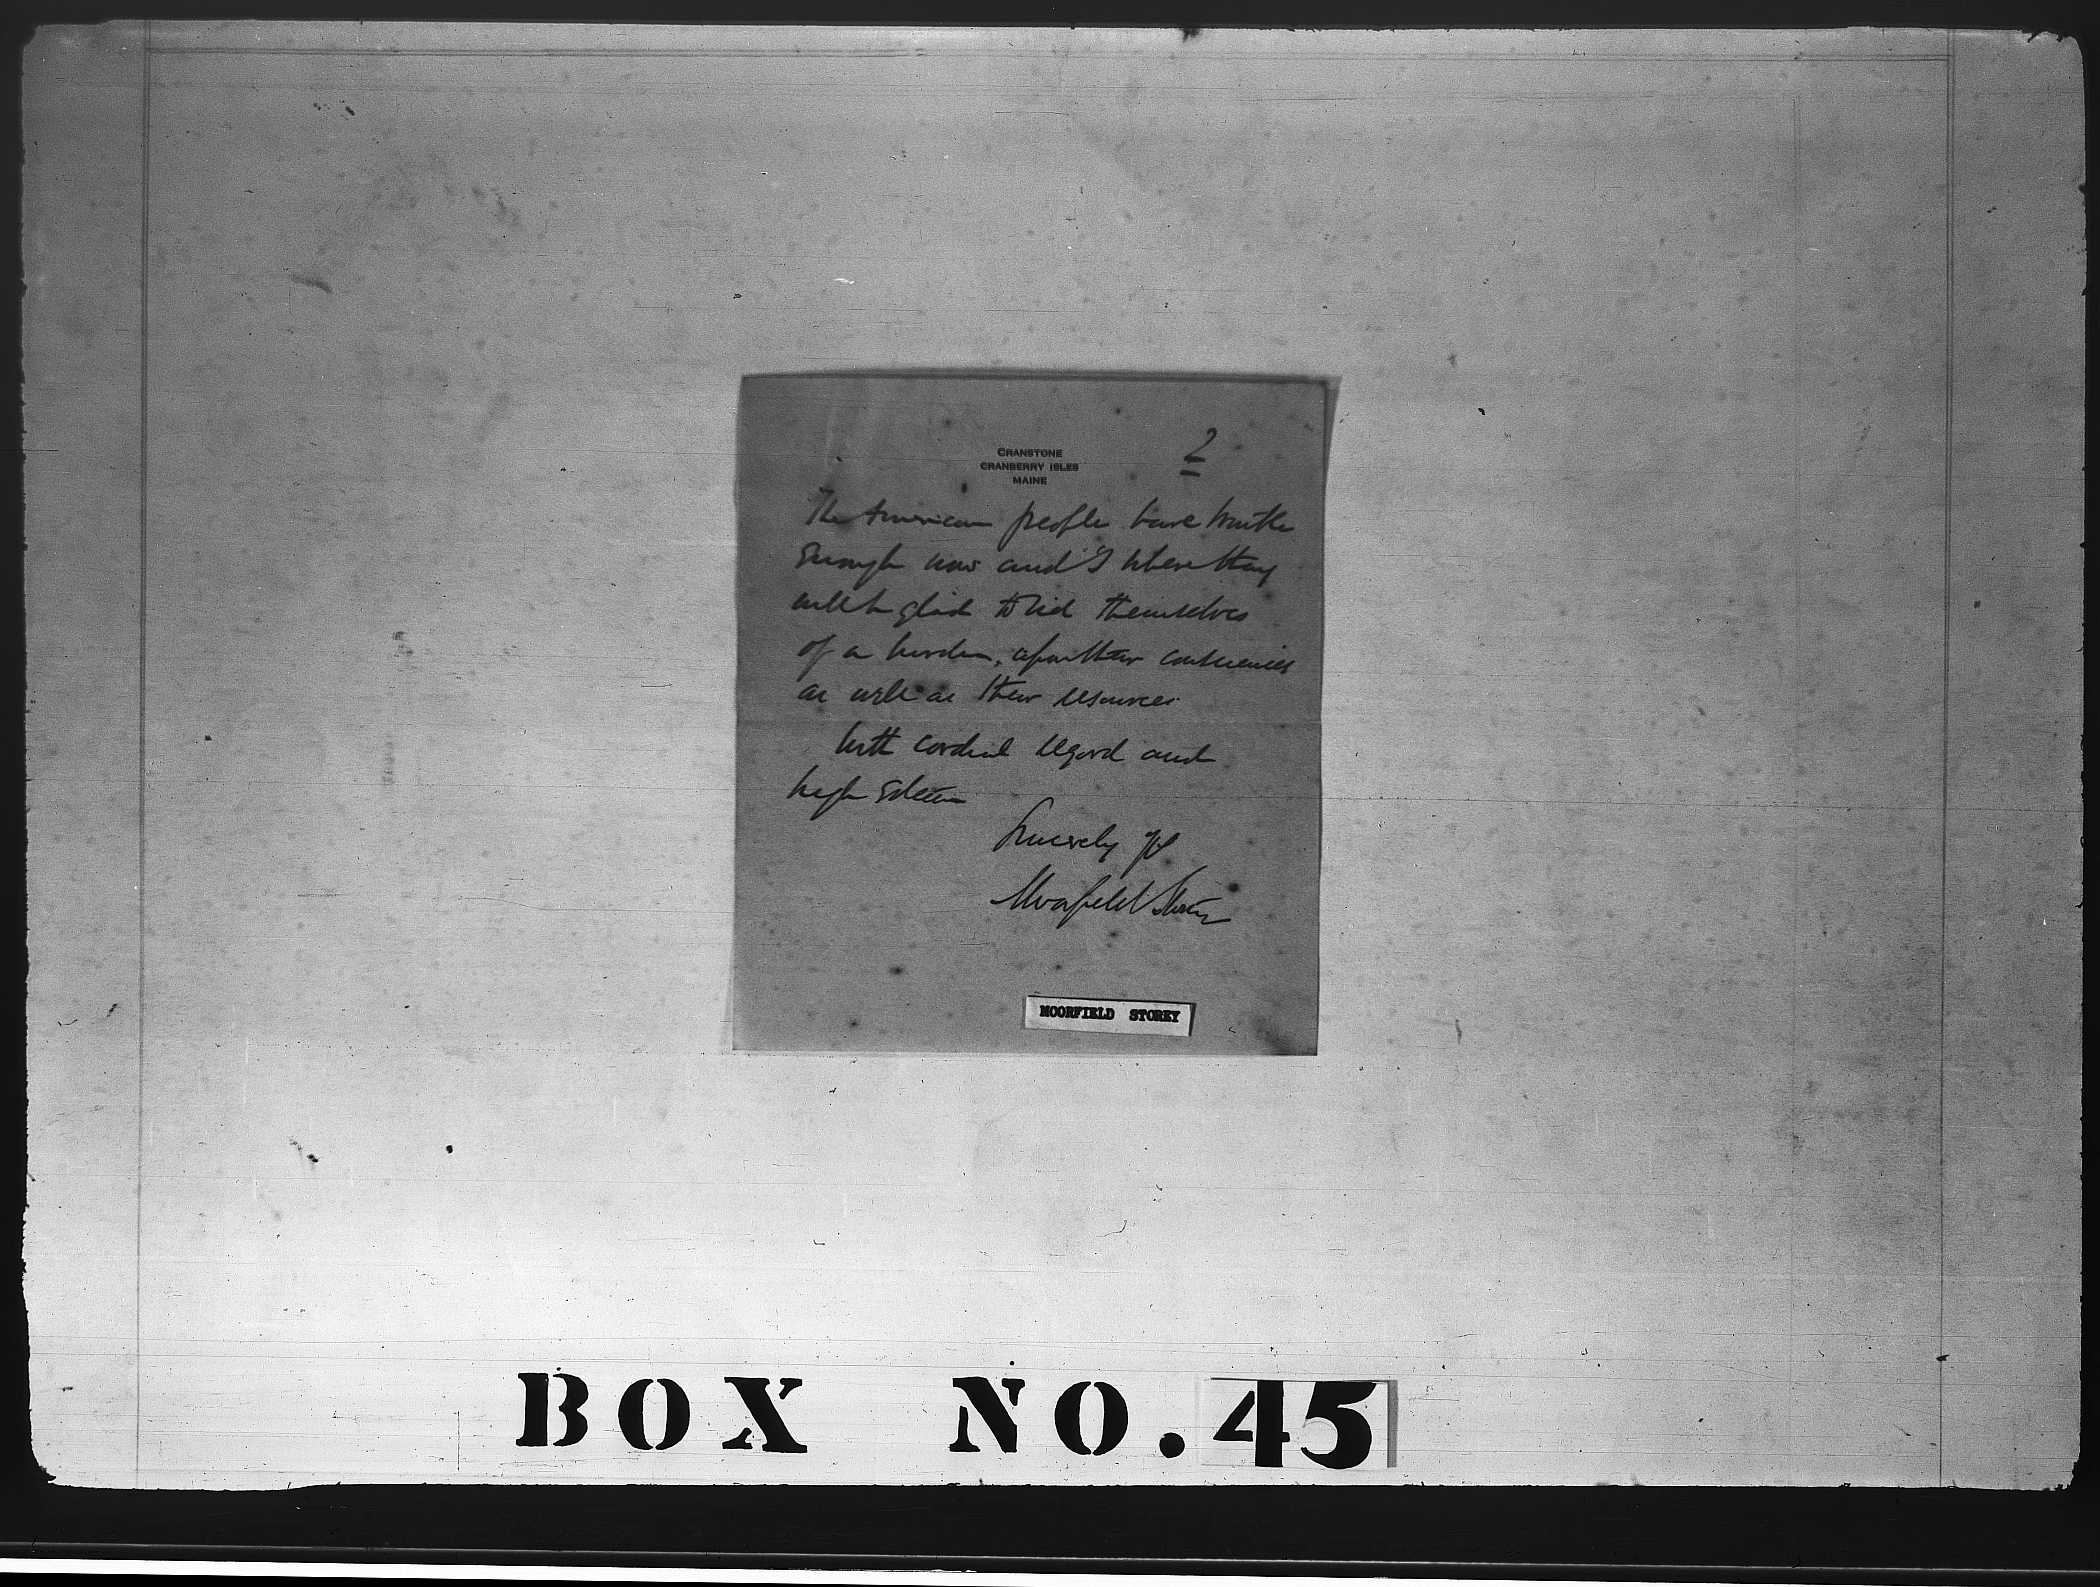 CRANSTONE
CRANBERRY ISLES
MAINE
2
The American people have trouble
enough now and I believe they
will be glad to rid themselves
of a burden, upon their consciences
as well as their resources.
With cordial regard and
high esteem
Sincerely yrs
Moorfield Storey
MOORFIELD STOREY
BOX NO. 45